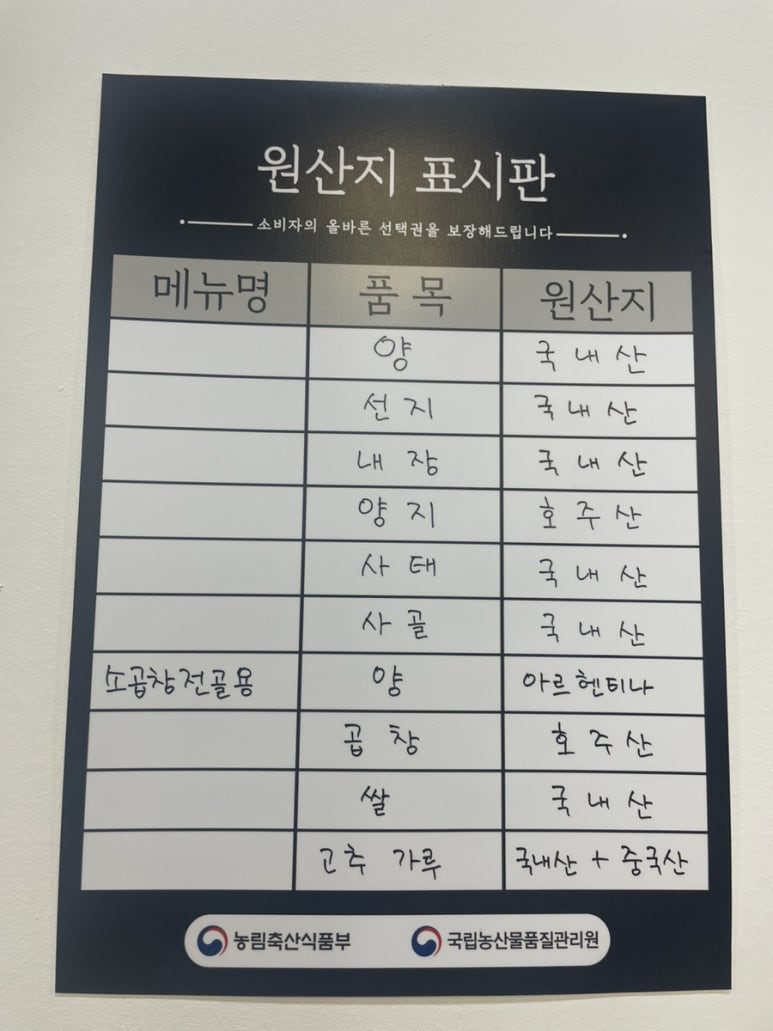 원산지 표시판
소비자의 올바른 선택권을 보장해드립니다
메뉴명 품목 원산지
양 국내산
선지 국내산
내장 국내산
양지 호주산
사태 국내산
사골 국내산
소곱창전골용 양 아르헨티나
곱창 호주산
쌀 국내산
고추가루 국내산 + 중국산
농림축산식품부 국립농산물품질관리원